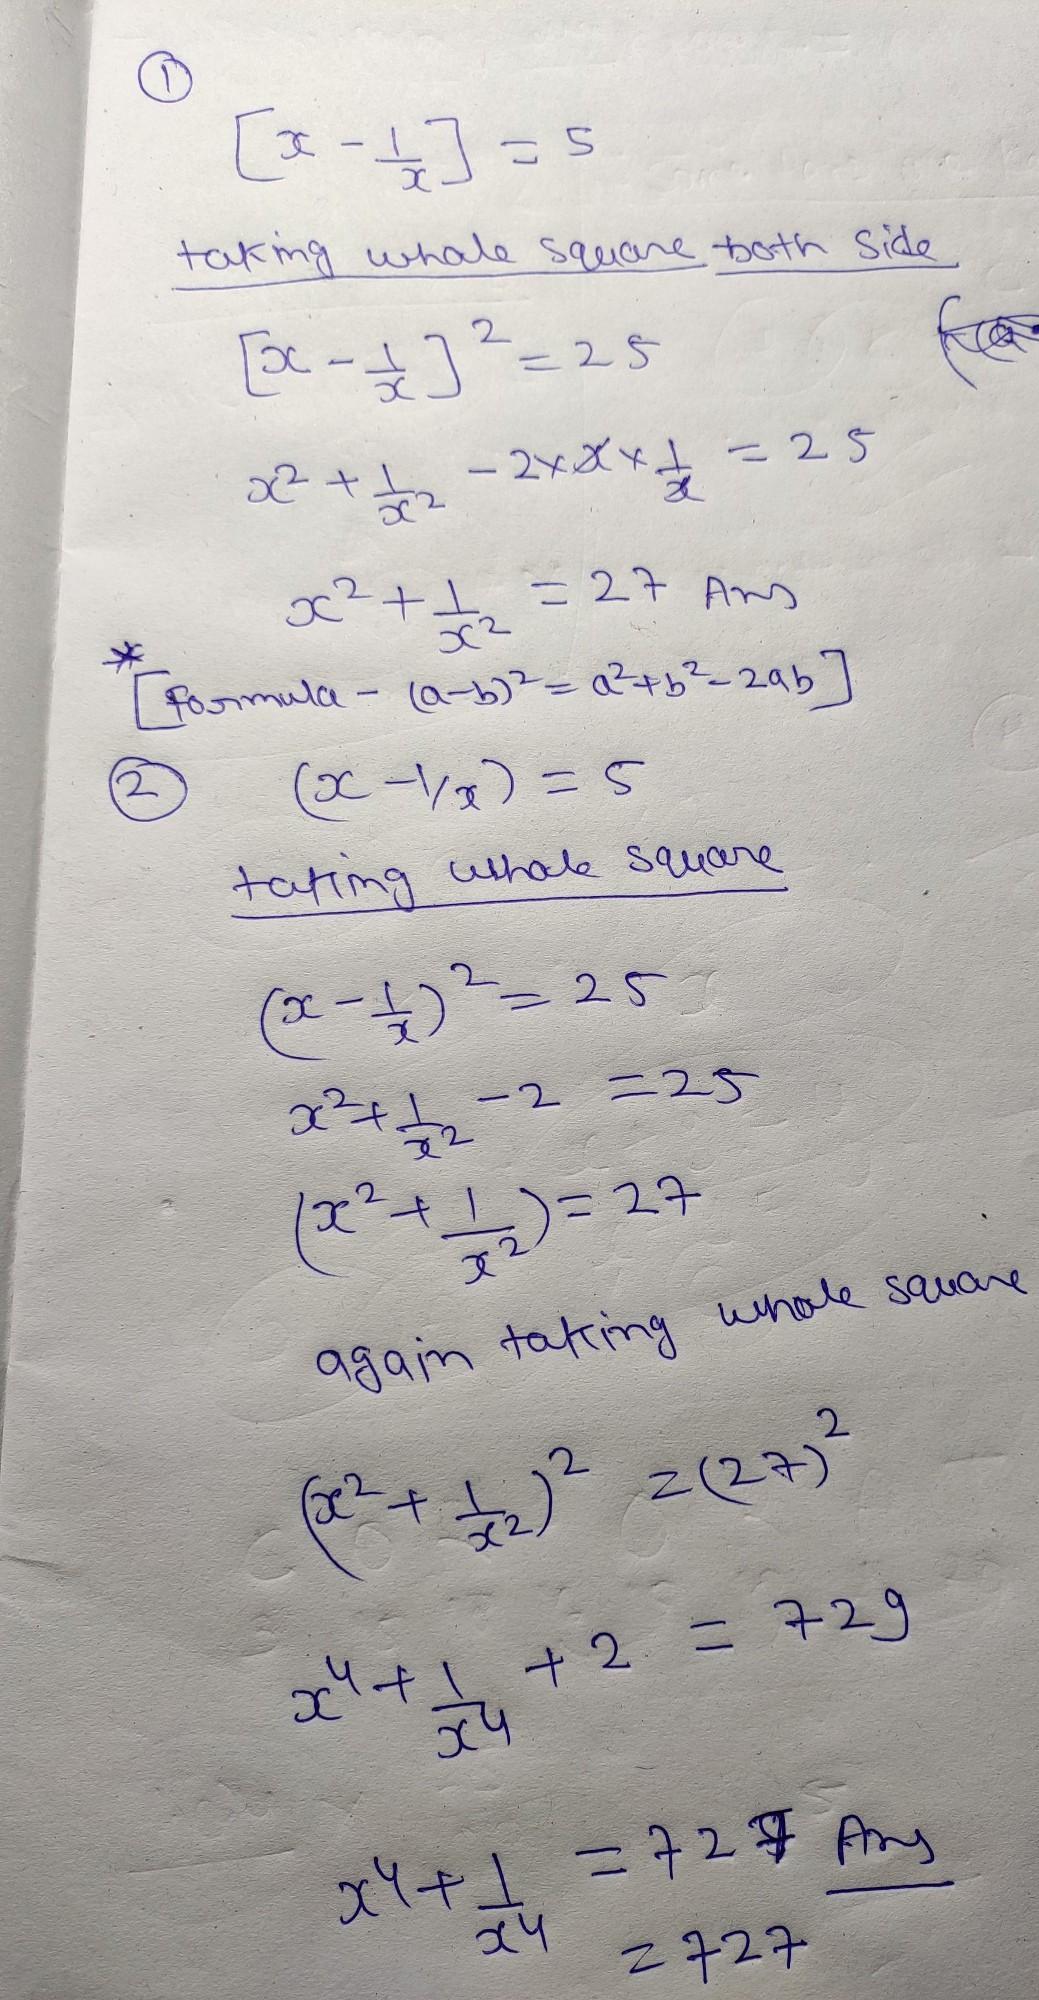 ①
[x - 1/x] = 5
taking whole square both side
[x - 1/x]² = 25
x² + 1/x² - 2 × x × 1/x = 25
x² + 1/x² = 27 Ans
* [Formula - (a-b)² = a²+b²-2ab]
② (x - 1/x) = 5
taking whole square
(x - 1/x)² = 25
x² + 1/x² - 2 = 25
(x² + 1/x²) = 27
again taking whole square
(x² + 1/x²)² = (27)²
x⁴ + 1/x⁴ + 2 = 729
x⁴ + 1/x⁴ = 727 Ans
= 727